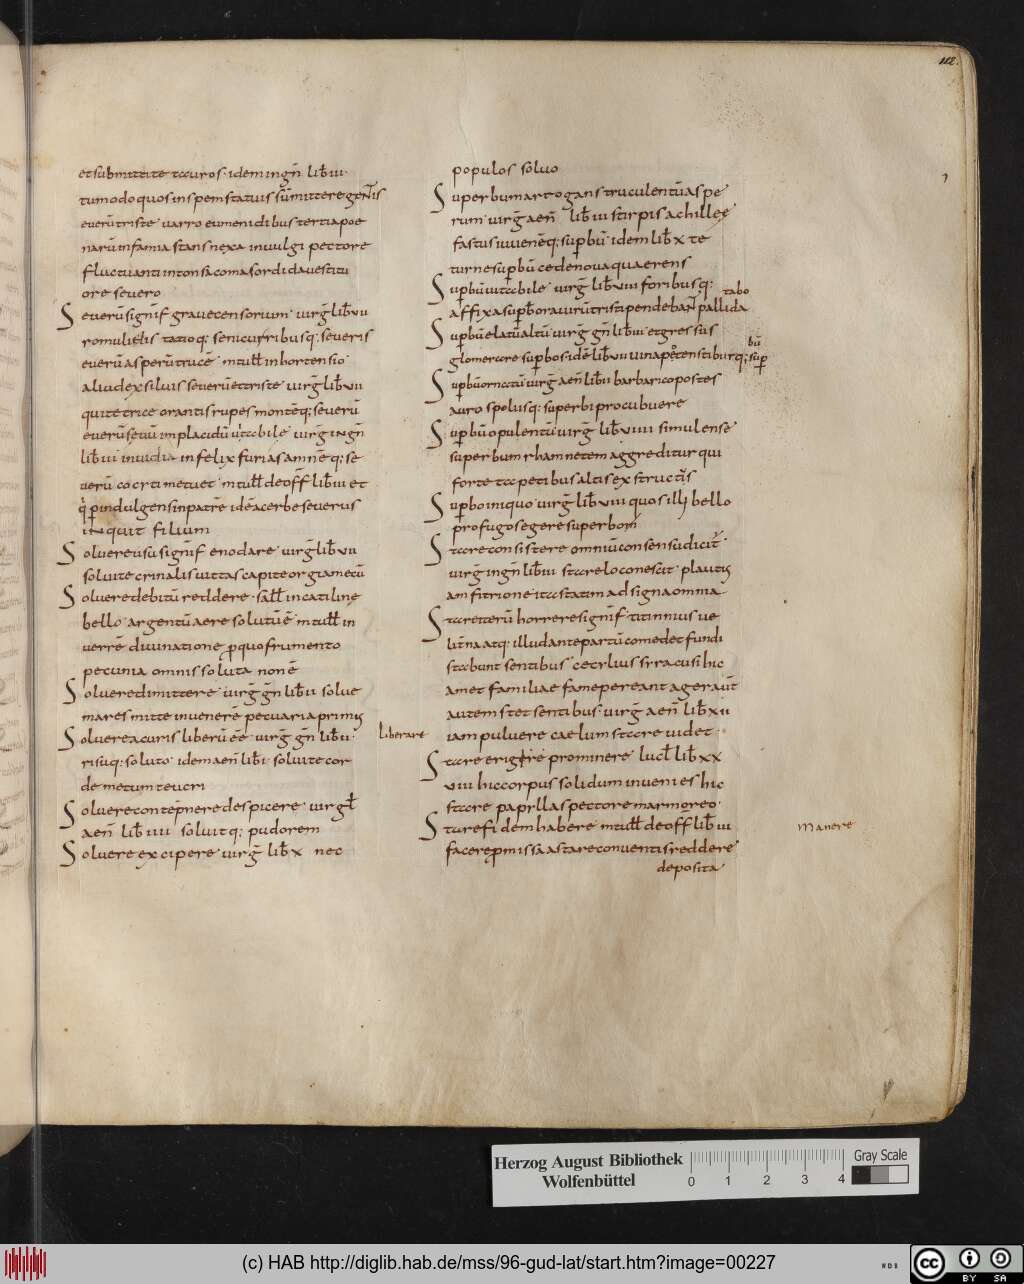 112.
et submittite tauros· idem in gñ lib̄ iii·
tu modo quos in spem statuis sūmittere gentis
euerū triste uarro eumenidibus tertia poe
narū infamia stans nexa in uulgi pectore
fluctuanti intonsa coma sordida uestitu
ore seuero
Seuerū signif graue censorium· uirḡ lib̄ vii
romulielis tatioq; seni curribusq; seueris
euerū asperū trucē m tull̄ in hortensio·
aliud ex siluis seuerū et triste uirḡ lib̄ vii
qui tetrice orrantis rupes montēq; seuerū
euerū seuū implacidū utabile uirḡ in gñ
lib̄ iii inuidia infelix furias amnēq; se
uerū cocti metuet m tull̄ de off̄ lib̄ iii et
q̇ pindulgens in patrē idē acerbe seuerus
inquit filium
Soluere usu signif enodare uirḡ lib̄ vii
soluite crinalis uittas capite orgia mecū
Soluere debitū reddere· sall̄ in catiline
bello· argentū aere solutū ē m tull̄ in
uerrē diuinatione p quo frumento
pecunia omnis soluta non ē
Soluere dimittere uirḡ gñ lib̄ ii solue
mares mitte in uenerē pecuaria primus
Soluere a curis liberū ēē uirḡ gñ lib̄ ii· liberare
risuq: soluto· idem aeñ lib̄ i· soluite cor
de metum teucri
Soluere contēpnere despicere uirgl̄
aeñ lib̄ iiii soluitq; pudorem
Soluere excipere uirḡ lib̄ x nec
populos soluo
Superbum arrogans truculentū aspe
rum· uirḡ aeñ lib̄ iii stirpis achillee
fastus iuuenēq; supbū· idem lib̄ x te
turne supbū cede noua quaerens
Supbū uitabile uirḡ lib̄ viii foribusq:
affixa supb̄ ora uirū tristi pendebañ pallida tabo
Supbū elatū altū uirḡ gñ lib̄ iii et gressus
glomerare supbos idē lib̄ vii uina petens tiburq; sup bū
Supbū ornatū uirḡ aeñ lib̄ ii barbarico postes
auro spoliisq: superbi procubuere
Supbū opulentū uirḡ lib̄ viiii simul ense
superbum rhamnetem aggreditur qui
forte tapetibus altis exstructis
Supbo iniquo· uirḡ lib̄ viii quos illi bello
profugos egere superbom
Stare consistere omniū consensu dicit̄
uirḡ in gñ lib̄ iii stare loco nescit· plautus
amfitrione ita statim ad signa omnia
Stare iterū horrere signif· titinnius ue
litrna atq: illud ante partū comedet fundi
stabunt sentibus cecilius syracusi hic
amet familiae fame pereant ager aut
autem stet sentibus· uirḡ aeñ lib̄ xii
iam puluere caelum stare uidet
Stare erigere prominere lucil̄ lib̄ xx
viii hic corpus solidum inuenies hic
stare papillas pectore marmoreo·
Stare fidem habere m tull̄ de off̄ lib̄ iii manere
facere pmissa astare conuentis reddere
deposita
Herzog August Bibliothek
Wolfenbüttel
0 1 2 3 4
Gray Scale
(c) HAB http://diglib.hab.de/mss/96-gud-lat/start.htm?image=00227
WDB
cc BY SA